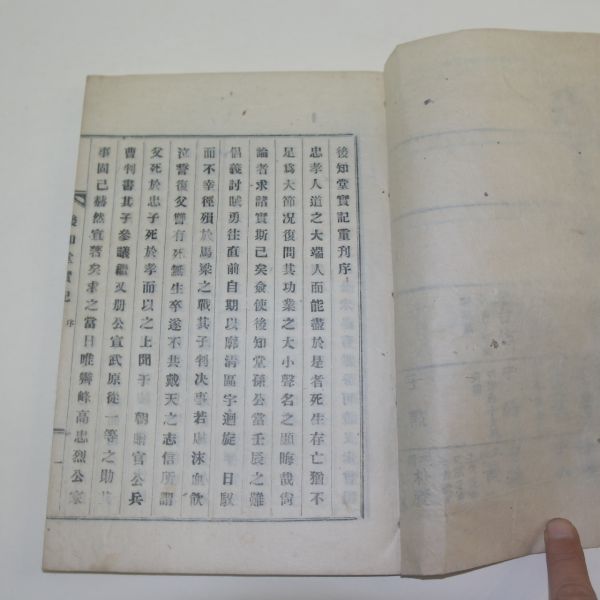 後知堂實記重刊序
忠孝人道之大端人而能盡於是者死生存亡猶不
足爲大節况復問其功業之大小聲名之顯晦哉尙
論者求諸實斯已矣僉使後知堂孫公當壬辰之難
倡義討賊勇往直前自期以廓淸區宇迴旋 日馭
而不幸徑殞於馬梁之戰其子判决事若 沫血飮
泣誓復父讐有死無生卒遂不共戴天之志信所謂
父死於忠子死於孝而以之上聞于 朝 官公兵
曹判書其子參議繼又册公宣武原從一等之勛
事固已赫然宣著矣求之當日唯霽峰高忠烈公家
後知堂實記
序
一